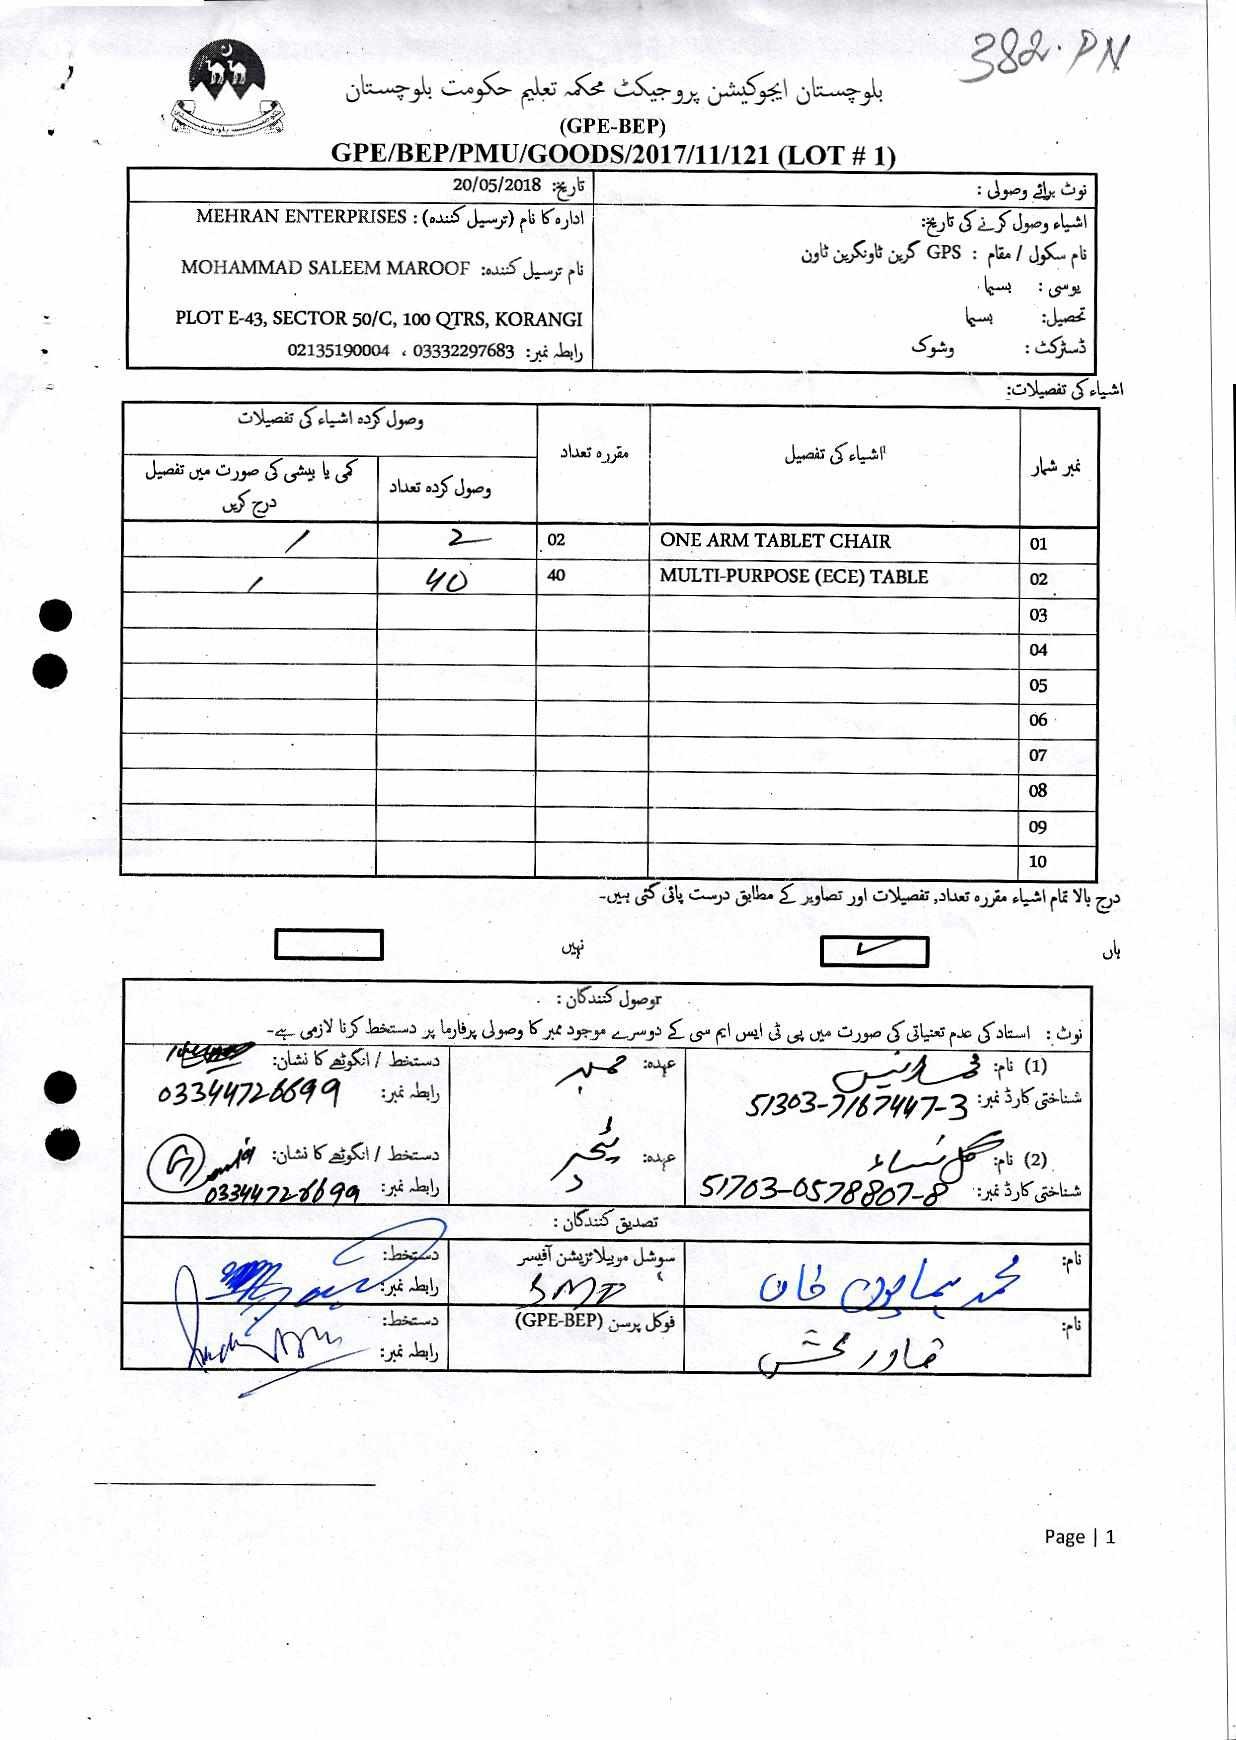 382.PN
بلوچستان ایجوکیشن پروجیکٹ محکمہ تعلیم حکومت بلوچستان
(GPE-BEP)
GPE/BEP/PMU/GOODS/2017/11/121 (LOT # 1)
نوٹ برائے وصولی :
تاریخ: 20/05/2018
اشیاء وصول کرنے کی تاریخ:
ادارہ کا نام (ترسیل کنندہ) : MEHRAN ENTERPRISES
نام سکول / مقام : GPS گرین ٹاؤنگرین ٹاون
نام ترسیل کنندہ: MOHAMMAD SALEEM MAROOF
یوسی : بسیما
تحصیل: بسیما
PLOT E-43, SECTOR 50/C, 100 QTRS, KORANGI
ڈسٹرکٹ : وشوک
رابطہ نمبر: 03332297683 ، 02135190004
اشیاء کی تفصیلات:
نمبر شمار اشیاء کی تفصیل مقررہ تعداد وصول کردہ اشیاء کی تفصیلات
وصول کردہ تعداد کمی یا بیشی کی صورت میں تفصیل درج کریں
01 ONE ARM TABLET CHAIR 02 2 /
02 MULTI-PURPOSE (ECE) TABLE 40 40 /
03
04
05
06
07
08
09
10
درج بالا تمام اشیاء مقررہ تعداد, تفصیلات اور تصاویر کے مطابق درست پائی گئی ہیں۔
ہاں ✓ نہیں
وصول کنندگان :
نوٹ : استاد کی عدم تعنیاتی کی صورت میں پی ٹی ایس ایم سی کے دوسرے موجود ممبر کا وصولی پرفارما پر دستخط کرنا لازمی ہے۔
(1) نام: عہدہ: ممبر دستخط / انگوٹھے کا نشان:
شناختی کارڈ نمبر: 51303-7167447-3 رابطہ نمبر: 03344726699
(2) نام: گل نساء عہدہ: ٹیچر دستخط / انگوٹھے کا نشان:
شناختی کارڈ نمبر: 51703-0578807-8 رابطہ نمبر: 03344726699
تصدیق کنندگان :
نام: محمد ہمایون خان سوشل موبیلائزیشن آفیسر دستخط:
رابطہ نمبر:
نام: فوکل پرسن (GPE-BEP) دستخط:
رابطہ نمبر:
Page | 1